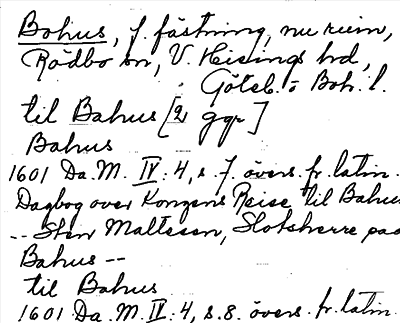 Bohus, f. fästning, nu ruin,
Rödbo sn, V. Hisings hd,
Göteb. o Boh. l.
til Bahus [2 ggr]
Bahus
1601 Da. M. IV: 4, s. 7. övers. fr. latin.
Dagbog over Kongens Reise til Bahus
-- Sten Maltesen, Slotsherre paa
Bahus --
til Bahus
1601 Da. M. IV: 4, s. 8. övers. fr. latin.